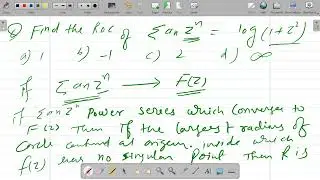 Q Find the RoC of Σ anzⁿ = log(1+z²)
a) 1 b) -1 c) 2 d) ∞
If Σ anzⁿ → F(z)
if Σ anzⁿ Power series which converges to
F(z) Then If the largest radius of
circle centred at origin. inside which
f(z) has no singular point Then R is